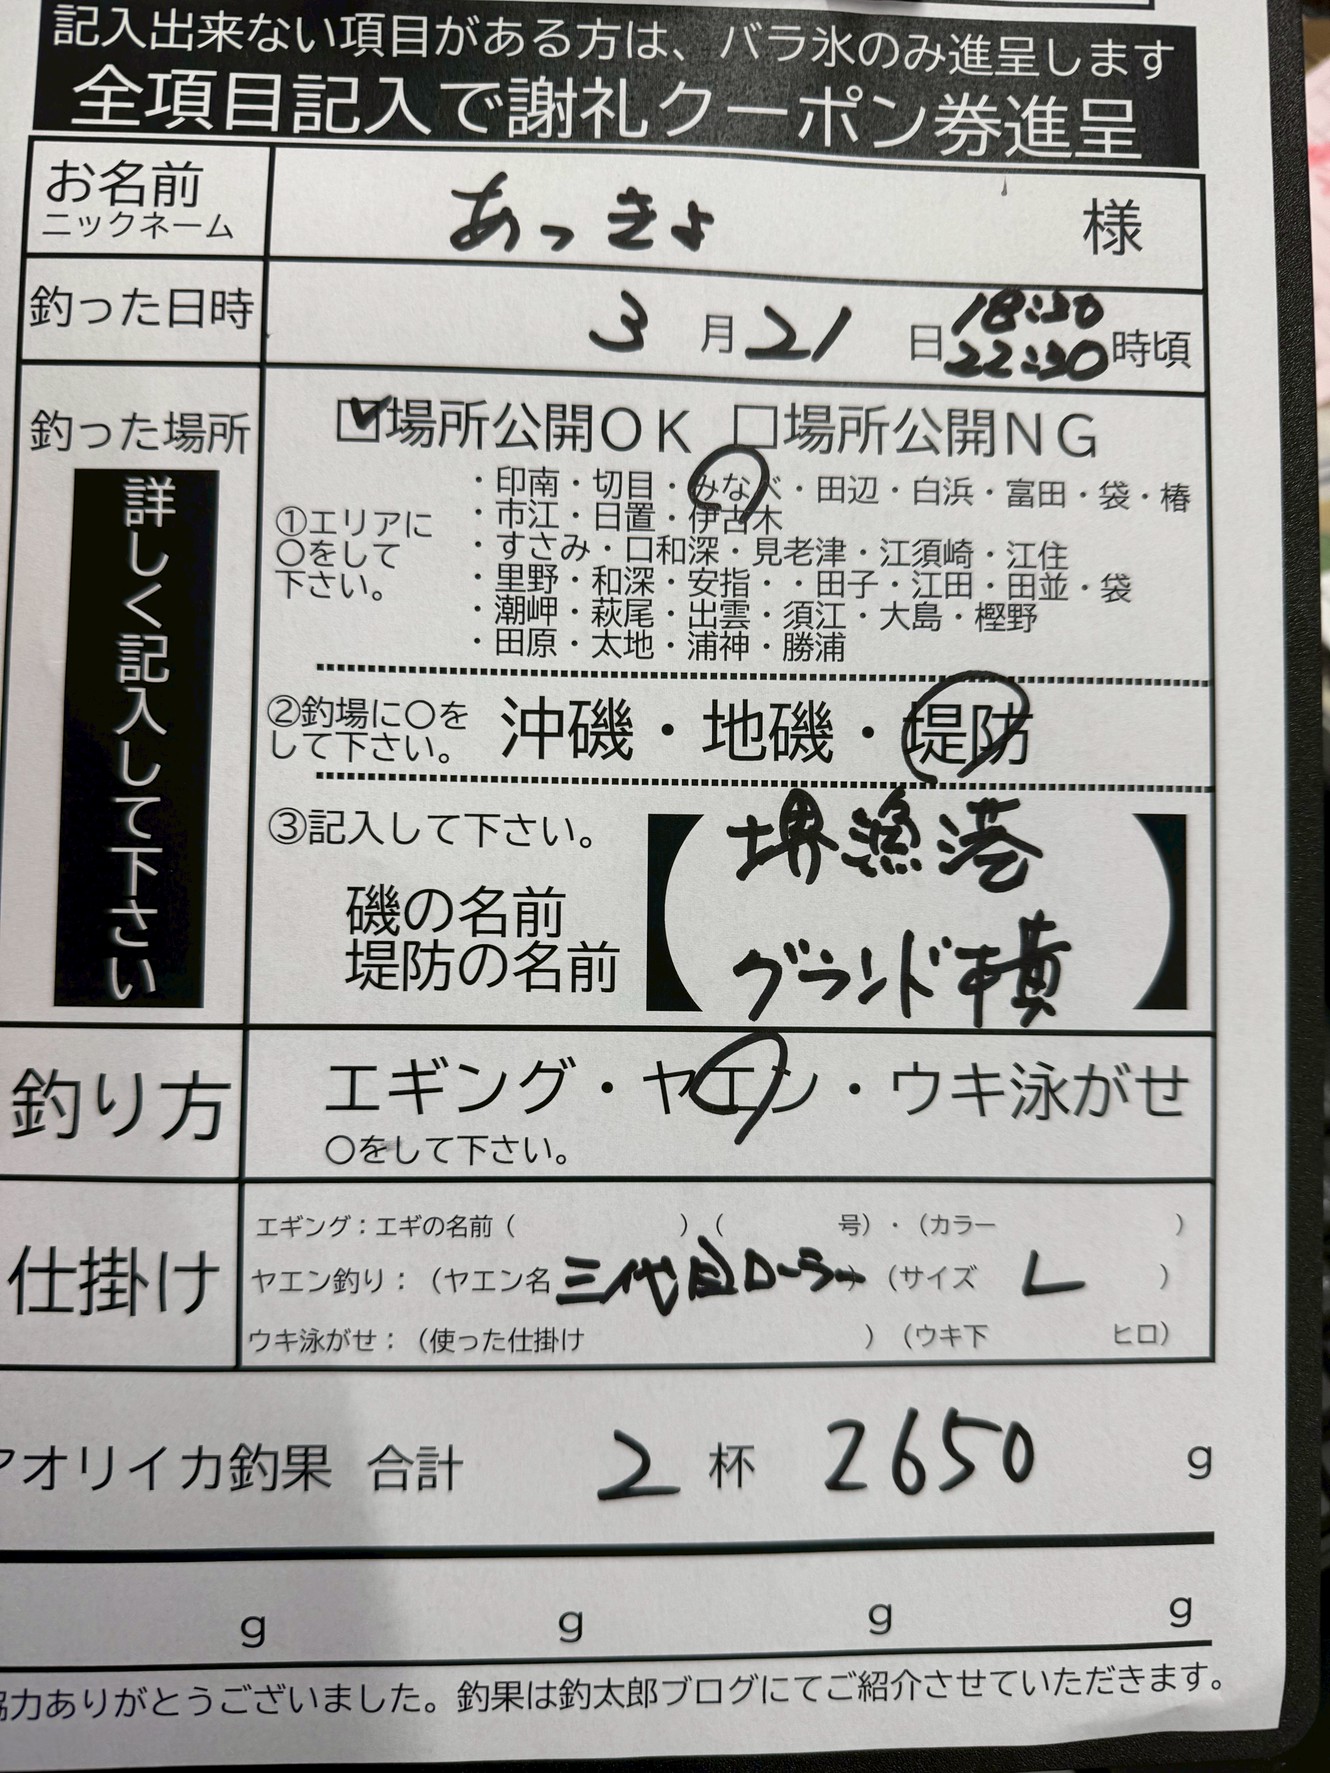 記入出来ない項目がある方は、バラ氷のみ進呈します
全項目記入で謝礼クーポン券進呈
お名前
ニックネーム
あっきょ 様
釣った日時
3月21日 18:30
22:30時頃
釣った場所
詳しく記入して下さい
☑場所公開OK □場所公開NG
①エリアに
〇をして
下さい。
・印南・切目・みなべ・田辺・白浜・富田・袋・椿
・市江・日置・伊古木
・すさみ・口和深・見老津・江須崎・江住
・里野・和深・安指・・田子・江田・田並・袋
・潮岬・萩尾・出雲・須江・大島・樫野
・田原・太地・浦神・勝浦
②釣場に〇を
して下さい。
沖磯・地磯・堤防
③記入して下さい。
磯の名前
堤防の名前
【堺漁港
グランド横】
釣り方
エギング・ヤエン・ウキ泳がせ
〇をして下さい。
仕掛け
エギング：エギの名前（ ）（ 号）・（カラー ）
ヤエン釣り：（ヤエン名 三代目ローラー）（サイズ L ）
ウキ泳がせ：（使った仕掛け ）（ウキ下 ヒロ）
アオリイカ釣果 合計 2杯 2650 g
g g g g
協力ありがとうございました。釣果は釣太郎ブログにてご紹介させていただきます。